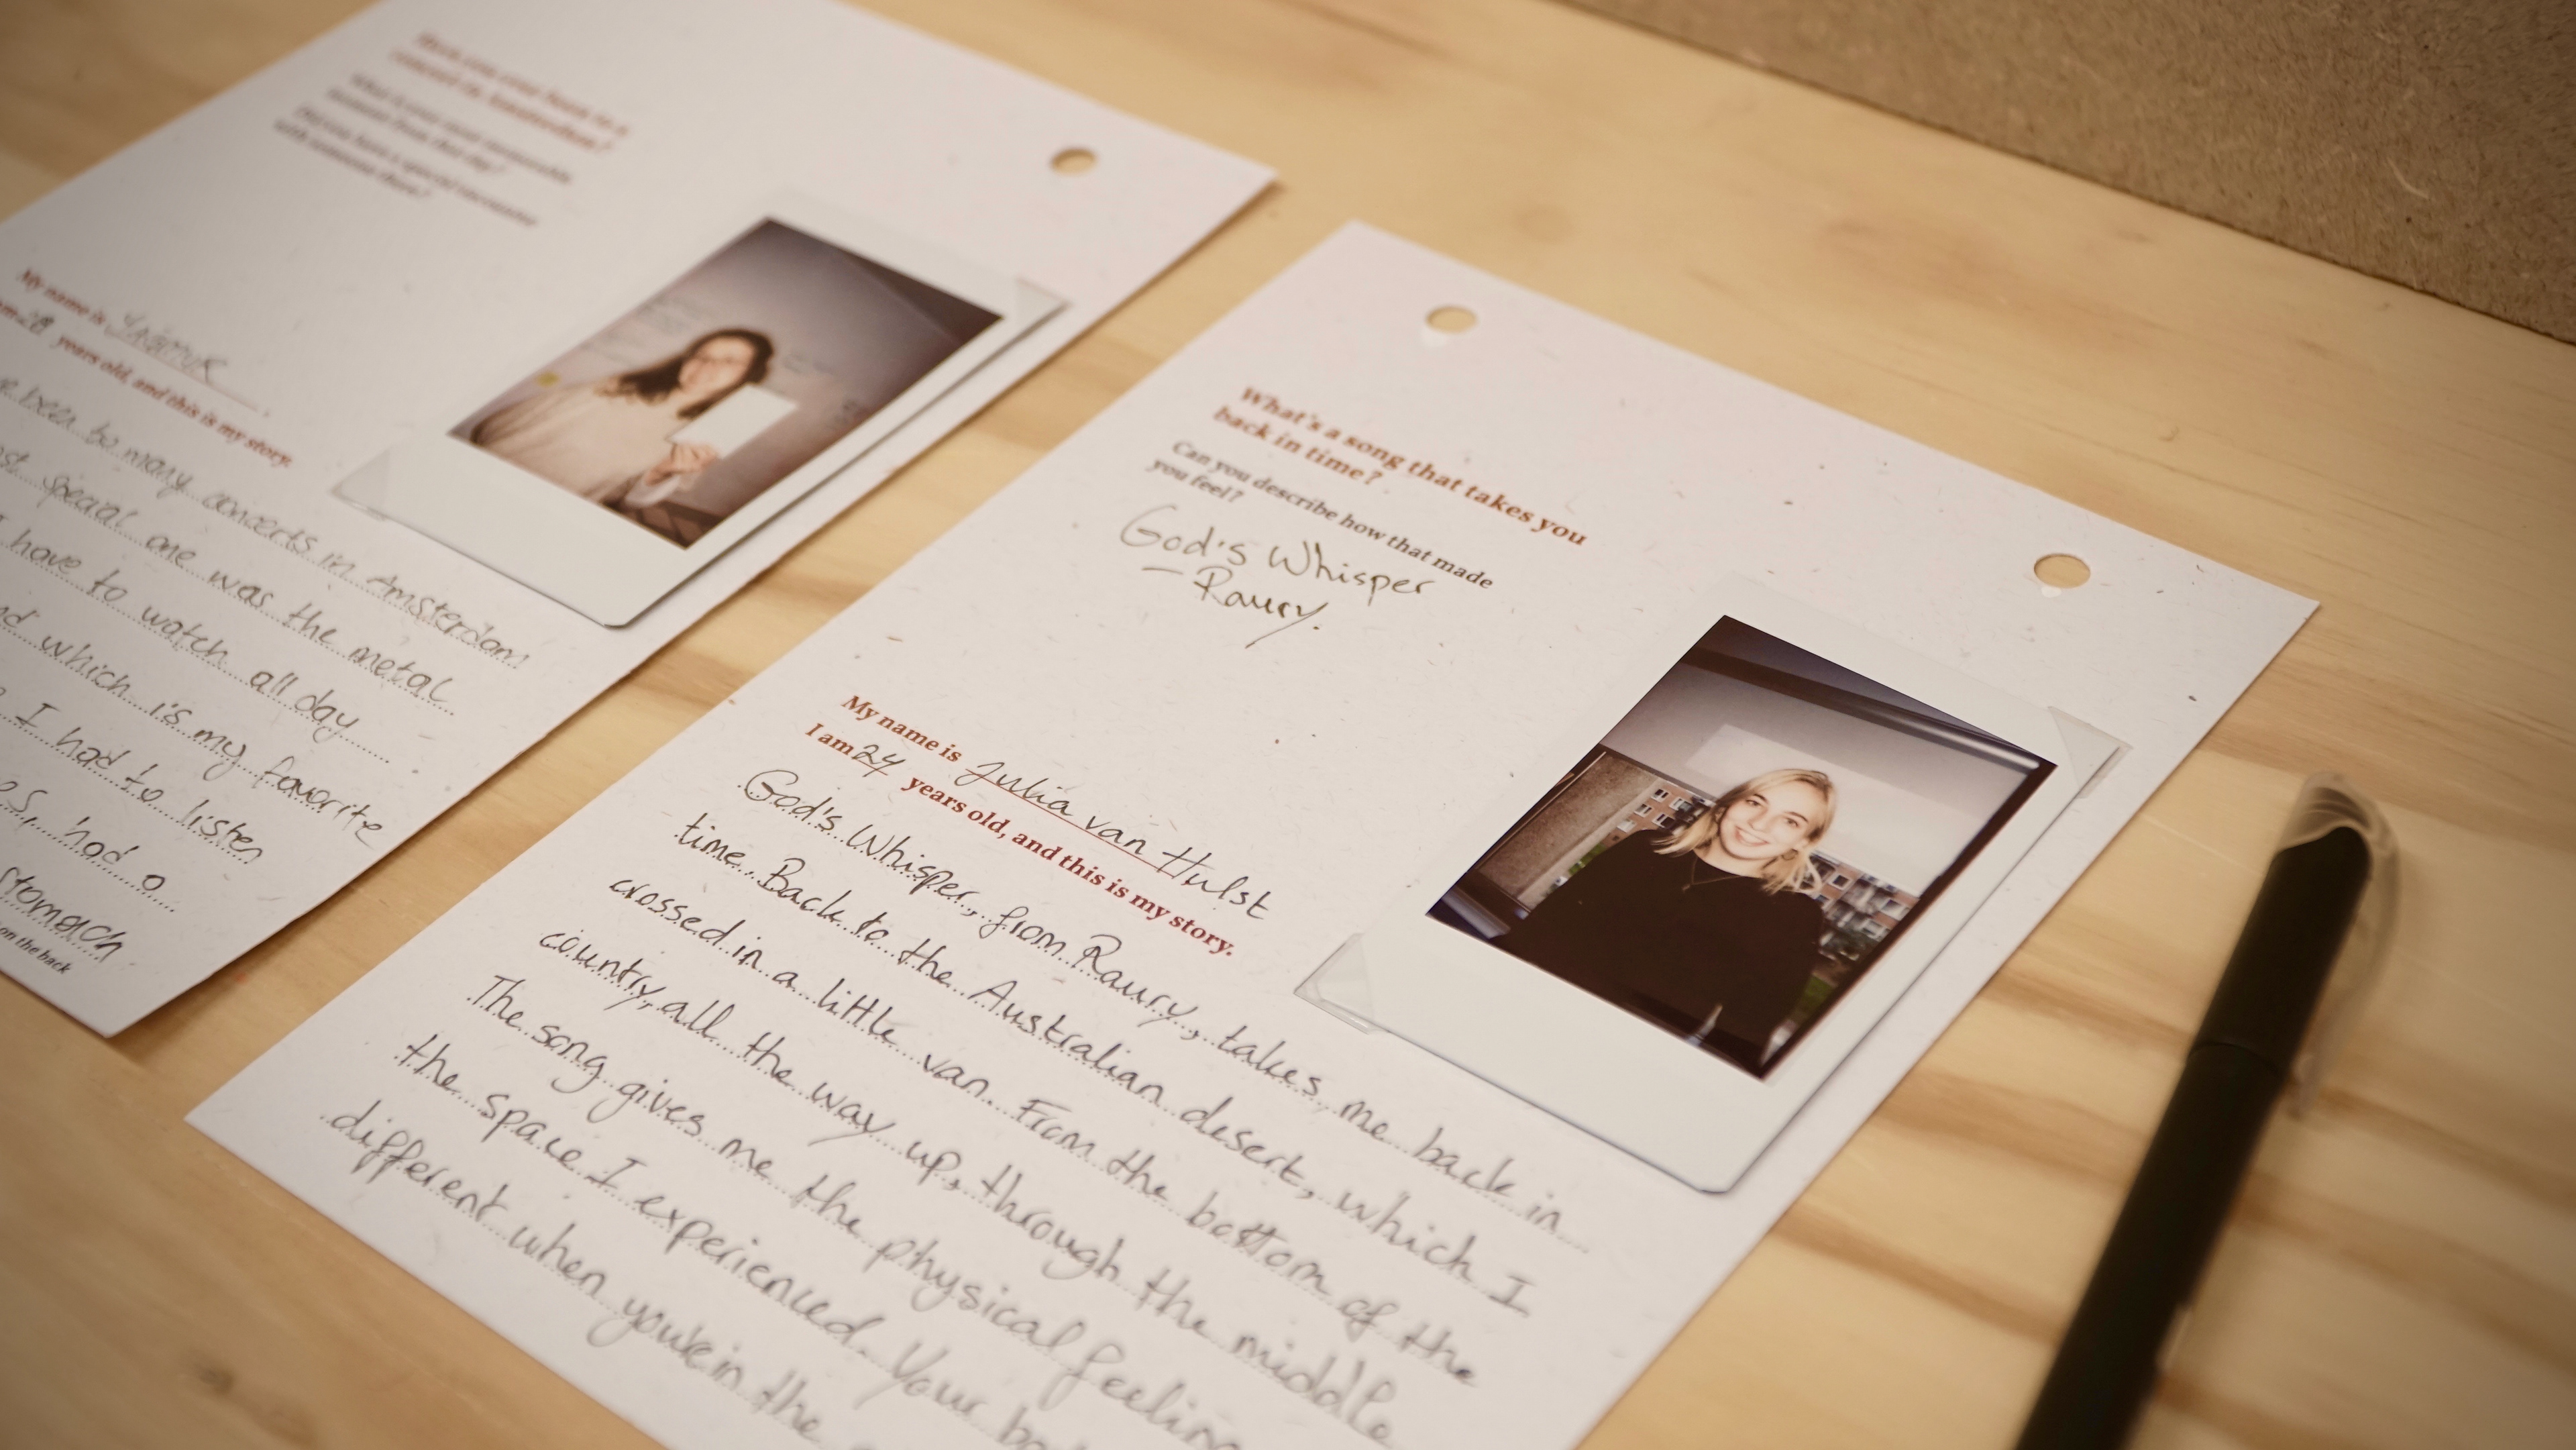 Have you ever been to a
concert in Amsterdam?
What is your most memorable
moment from that day?
Did you have a special encounter
with someone there?
My name is
years old, and this is my story.
been to many concerts in Amsterdam
special one was the metal
I have to watch all day
which is my favorite
I had to listen
had a
stomach
on the back
What's a song that takes you
back in time?
Can you describe how that made
you feel?
God's Whisper
– Raury.
My name is Julia van Hulst
I am 24 years old, and this is my story.
God's Whisper, from Raury, takes me back in
time. Back to the Australian desert, which I
crossed in a little van. From the bottom of the
country, all the way up, through the middle
The song gives me the physical feeling
the space I experienced. Your
different when you're in the